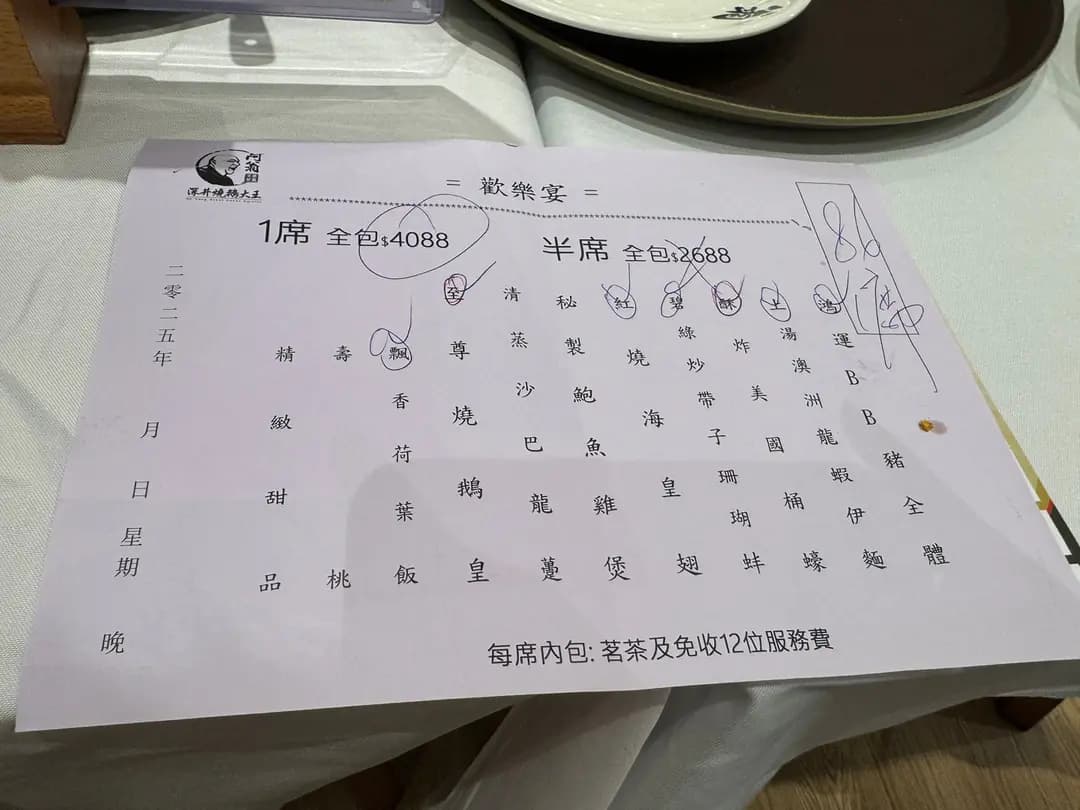 深井燒鵝大王
= 歡樂宴 =
1席 全包$4088
半席 全包$2688
86
鴻運BB豬全體
上湯澳洲龍蝦伊麵
酥炸美國桶蠔
碧綠炒帶子珊瑚蚌
紅燒海皇翅
秘製鮑魚雞煲
清蒸沙巴龍躉
至尊燒鵝皇
飄香荷葉飯
壽桃
精緻甜品
二零二五年 月 日星期 晚
每席內包: 茗茶及免收12位服務費